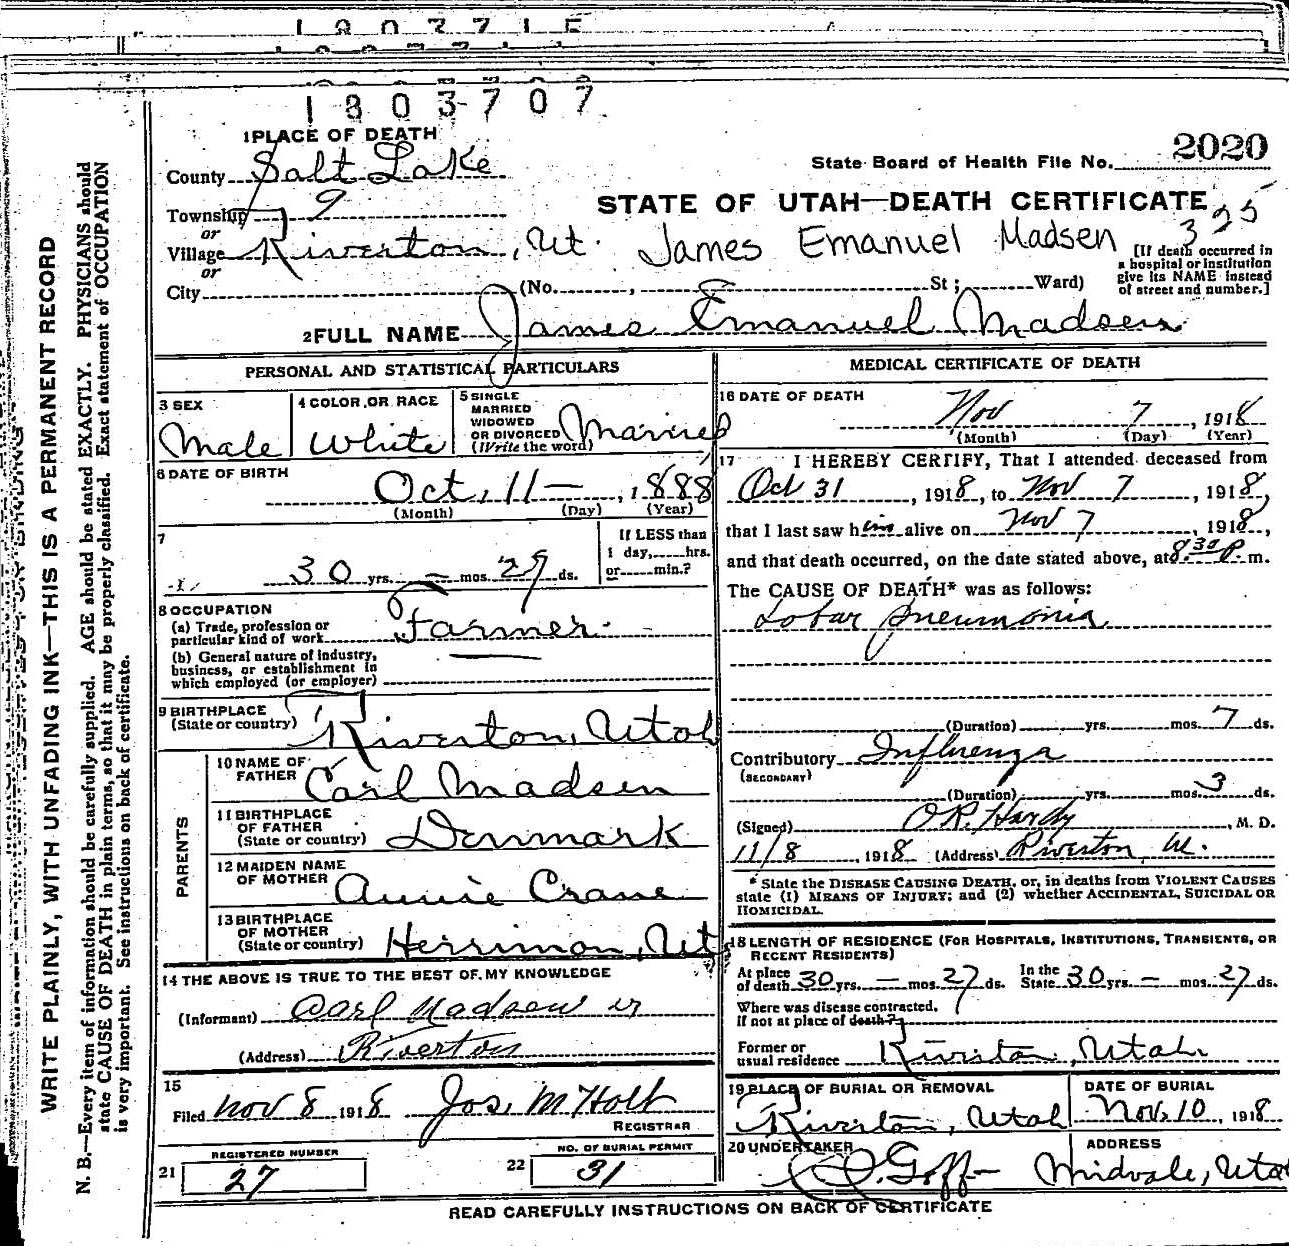 1803707
1 PLACE OF DEATH
County Salt Lake
State Board of Health File No. 2020
Township 9
or
STATE OF UTAH—DEATH CERTIFICATE
325
Village Riverton, Ut.
James Emanuel Madsen
or
City (No. , St ; Ward)
[If death occurred in
a hospital or institution
give its NAME instead
of street and number.]
2 FULL NAME James Emanuel Madsen
PERSONAL AND STATISTICAL PARTICULARS
3 SEX
Male
4 COLOR OR RACE
White
5 SINGLE
MARRIED
WIDOWED
OR DIVORCED
(Write the word)
Married
6 DATE OF BIRTH
Oct. 11 — , 1888
(Month) (Day) (Year)
7
30 yrs. — mos. 29 ds.
If LESS than
1 day, hrs.
or min.?
8 OCCUPATION
(a) Trade, profession or
particular kind of work Farmer
(b) General nature of industry,
business, or establishment in
which employed (or employer)
9 BIRTHPLACE
(State or country) Riverton, Utah
PARENTS
10 NAME OF
FATHER Carl Madsen
11 BIRTHPLACE
OF FATHER
(State or country) Denmark
12 MAIDEN NAME
OF MOTHER Annie Crane
13 BIRTHPLACE
OF MOTHER
(State or country) Herriman, Ut
14 THE ABOVE IS TRUE TO THE BEST OF MY KNOWLEDGE
(Informant) Carl Madsen
(Address) Riverton
15
Filed Nov 8 1918 Jos. M Holt
REGISTRAR
REGISTERED NUMBER
21 27
NO. OF BURIAL PERMIT
22 31
MEDICAL CERTIFICATE OF DEATH
16 DATE OF DEATH
Nov 7, 1918
(Month) (Day) (Year)
17 I HEREBY CERTIFY, That I attended deceased from
Oct 31, 1918, to Nov 7, 1918,
that I last saw him alive on Nov 7, 1918,
and that death occurred, on the date stated above, at 8:30 P. m.
The CAUSE OF DEATH* was as follows:
Lobar pneumonia
(Duration) yrs. mos. 7 ds.
Contributory Influenza
(SECONDARY)
(Duration) yrs. mos. 3 ds.
(Signed) O.R. Hardy, M. D.
11/8, 1918 (Address) Riverton Ut.
* State the DISEASE CAUSING DEATH, or, in deaths from VIOLENT CAUSES
state (1) MEANS OF INJURY; and (2) whether ACCIDENTAL, SUICIDAL OR
HOMICIDAL.
18 LENGTH OF RESIDENCE (FOR HOSPITALS, INSTITUTIONS, TRANSIENTS, OR
RECENT RESIDENTS)
At place
of death 30 yrs. — mos. 27 ds.
In the
State 30 yrs. — mos. 27 ds.
Where was disease contracted,
If not at place of death?
Former or
usual residence Riverton, Utah
19 PLACE OF BURIAL OR REMOVAL
Riverton, Utah
DATE OF BURIAL
Nov. 10, 1918
20 UNDERTAKER
Goff
ADDRESS
Midvale, Utah
READ CAREFULLY INSTRUCTIONS ON BACK OF CERTIFICATE
WRITE PLAINLY, WITH UNFADING INK—THIS IS A PERMANENT RECORD
N. B.—Every item of information should be carefully supplied. AGE should be stated EXACTLY. PHYSICIANS should
state CAUSE OF DEATH in plain terms, so that it may be properly classified. Exact statement of OCCUPATION
is very important. See instructions on back of certificate.